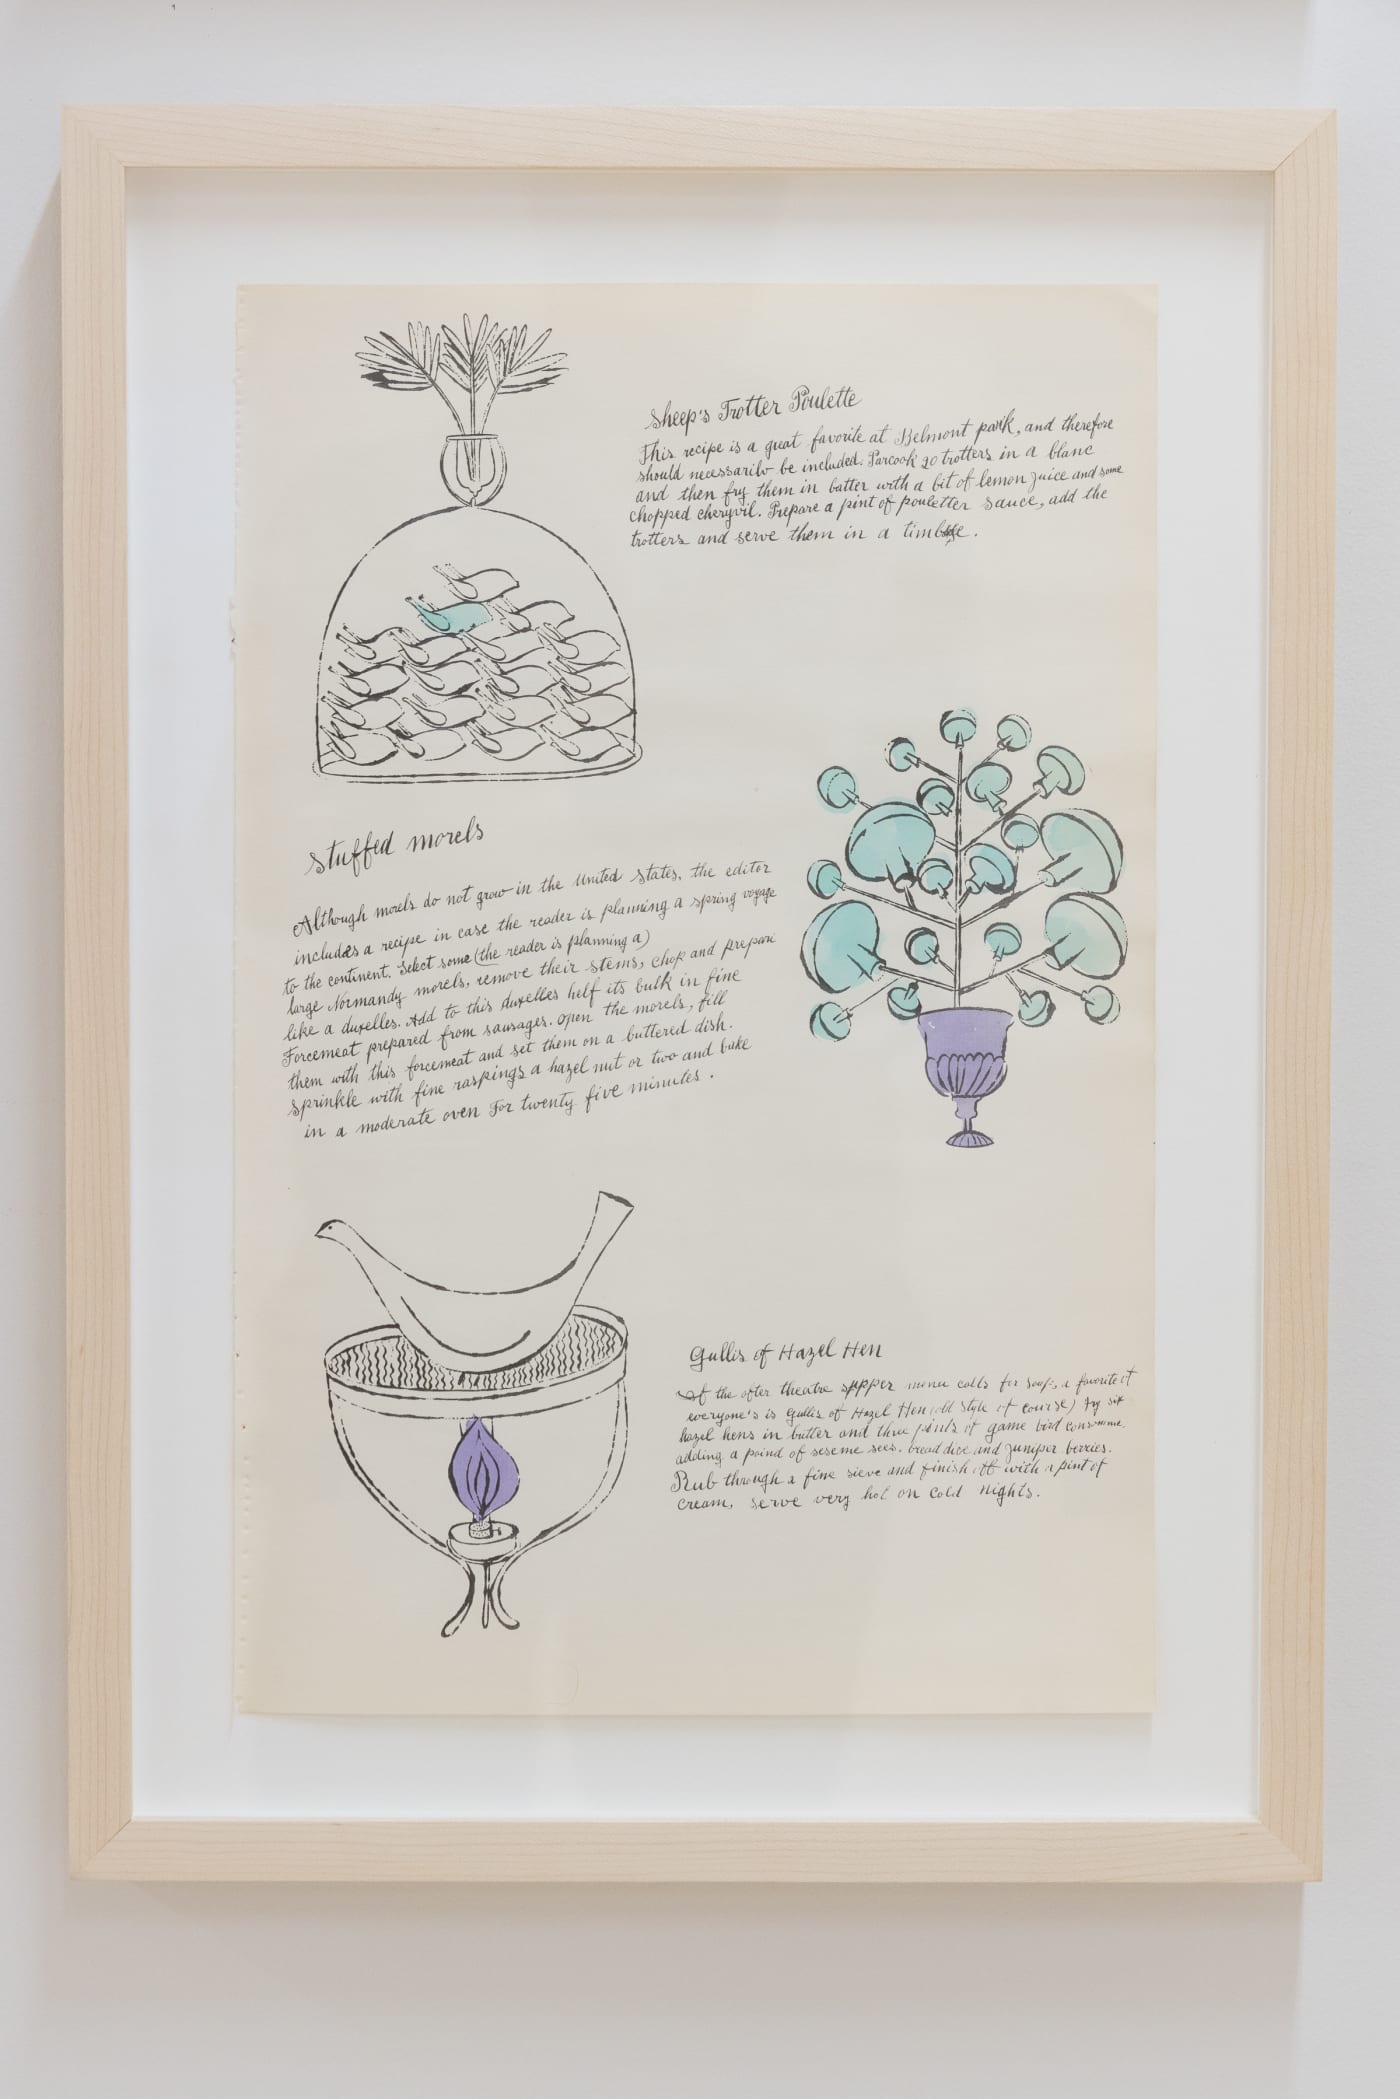 Sheep's Trotter Poulette
This recipe is a great favorite at Belmont park, and therefore
should necessarilv be included. Parcook 20 trotters in a blanc
and then fry them in batter with a bit of lemon juice and some
chopped chervil. Prepare a pint of pouletter sauce, add the
trotters and serve them in a
Stuffed morels
Although morels do not grow in the United States, the editor
includes a recipe in case the reader is planning a spring voyage
to the continent. Select some (the reader is planning a)
large Normandy morels, remove their stems, chop and prepare
like a duxelles. Add to this duxelles helf its bulk in fine
Forcemeat prepared from sausages. open the morels, fill
them with this forcemeat and set them on a buttered dish.
sprinkle with fine raspings a hazel nut or two and bake
in a moderate oven For twenty five minutes.
Gullis of Hazel Hen
If the ofter theatre supper menu calls for soup, a favorite of
everyone's is Gullis of Hazel Hen (old style of course) fry six
hazel hens in butter and three pints of game bird consomme,
adding a poind of seseme sees. bread dice and juniper berries.
Rub through a fine sieve and finish off with a pint of
cream, serve very hot on cold nights.